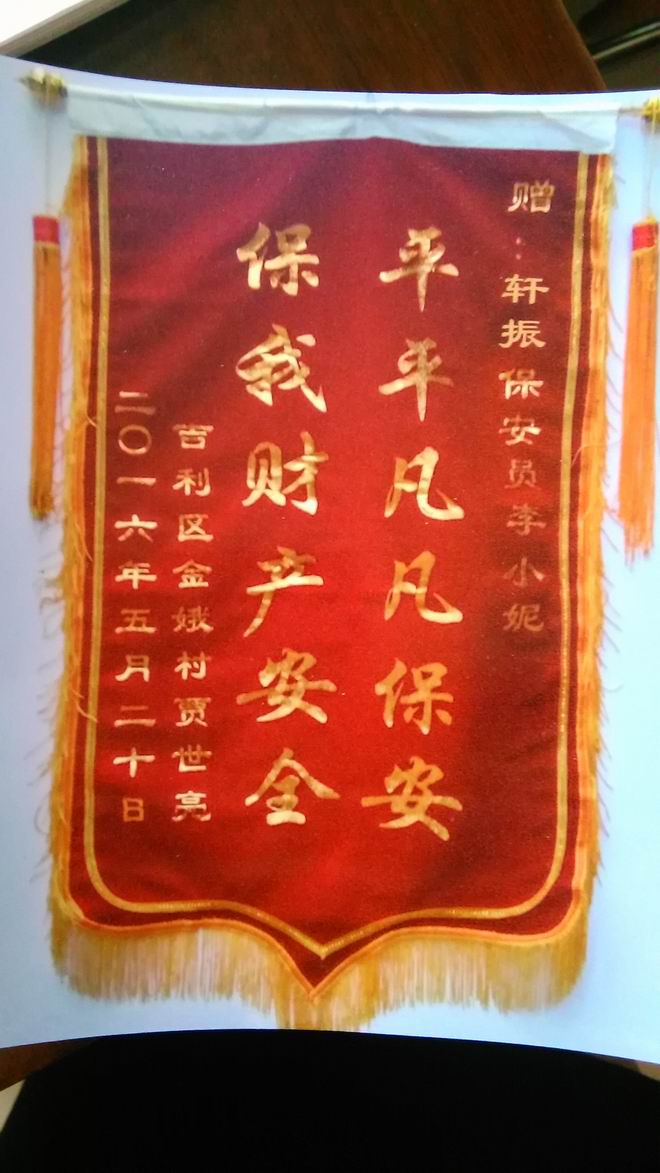 赠：轩振保安员李小妮
平平凡凡保安
保我财产安全
吉利区金娥村贾世亮
二〇一六年五月二十日